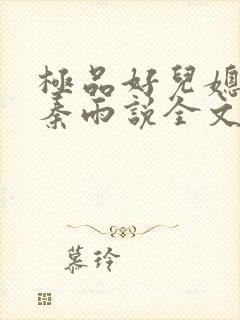 極品好兒媳
秦雨說全文
慕玲